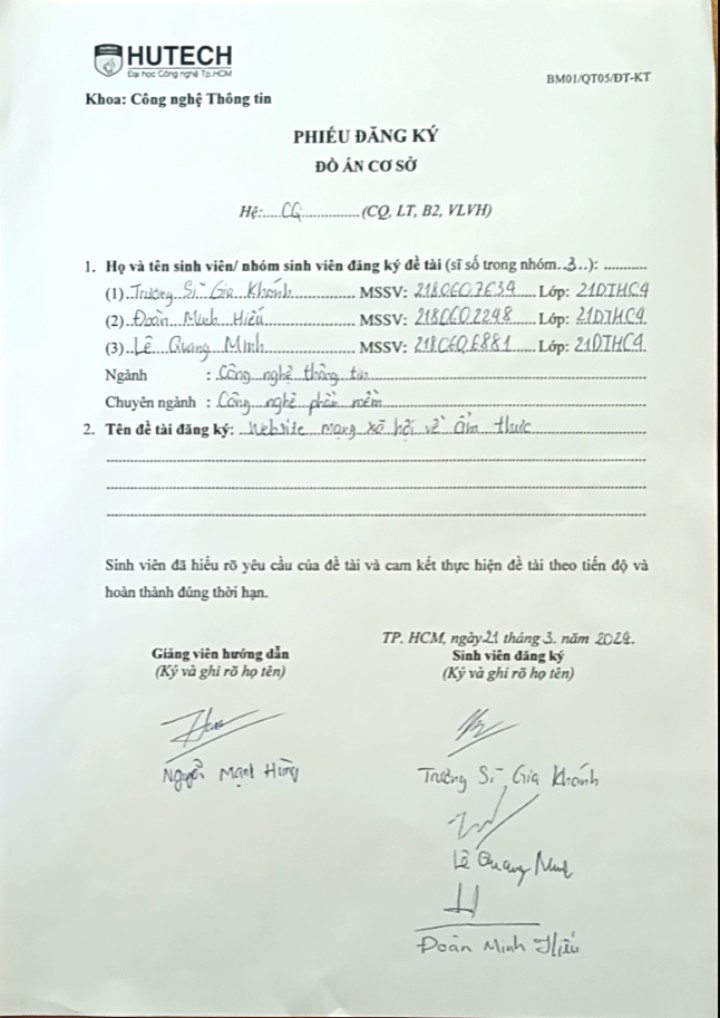 HUTECH
Đại học Công nghệ Tp.HCM
BM01/QT05/ĐT-KT
Khoa: Công nghệ Thông tin
PHIẾU ĐĂNG KÝ
ĐỒ ÁN CƠ SỞ
Hệ:.....CQ..............(CQ, LT, B2, VLVH)
1. Họ và tên sinh viên/ nhóm sinh viên đăng ký đề tài (sĩ số trong nhóm..3..): ...........
(1) Trương Sĩ Gia Khánh MSSV: 2180607634 Lớp: 21DTHC4
(2) Đoàn Minh Hiếu MSSV: 2180602248 Lớp: 21DTHC4
(3) Lê Quang Minh MSSV: 2180606881 Lớp: 21DTHC4
Ngành : Công nghệ thông tin
Chuyên ngành : Công nghệ phần mềm
2. Tên đề tài đăng ký: Website mạng xã hội về ẩm thực
Sinh viên đã hiểu rõ yêu cầu của đề tài và cam kết thực hiện đề tài theo tiến độ và
hoàn thành đúng thời hạn.
TP. HCM, ngày 21 tháng 3. năm 2024.
Giảng viên hướng dẫn
(Ký và ghi rõ họ tên)
Sinh viên đăng ký
(Ký và ghi rõ họ tên)
Nguyễn Mạnh Hùng
Trương Sĩ Gia Khánh
Lê Quang Minh
Đoàn Minh Hiếu